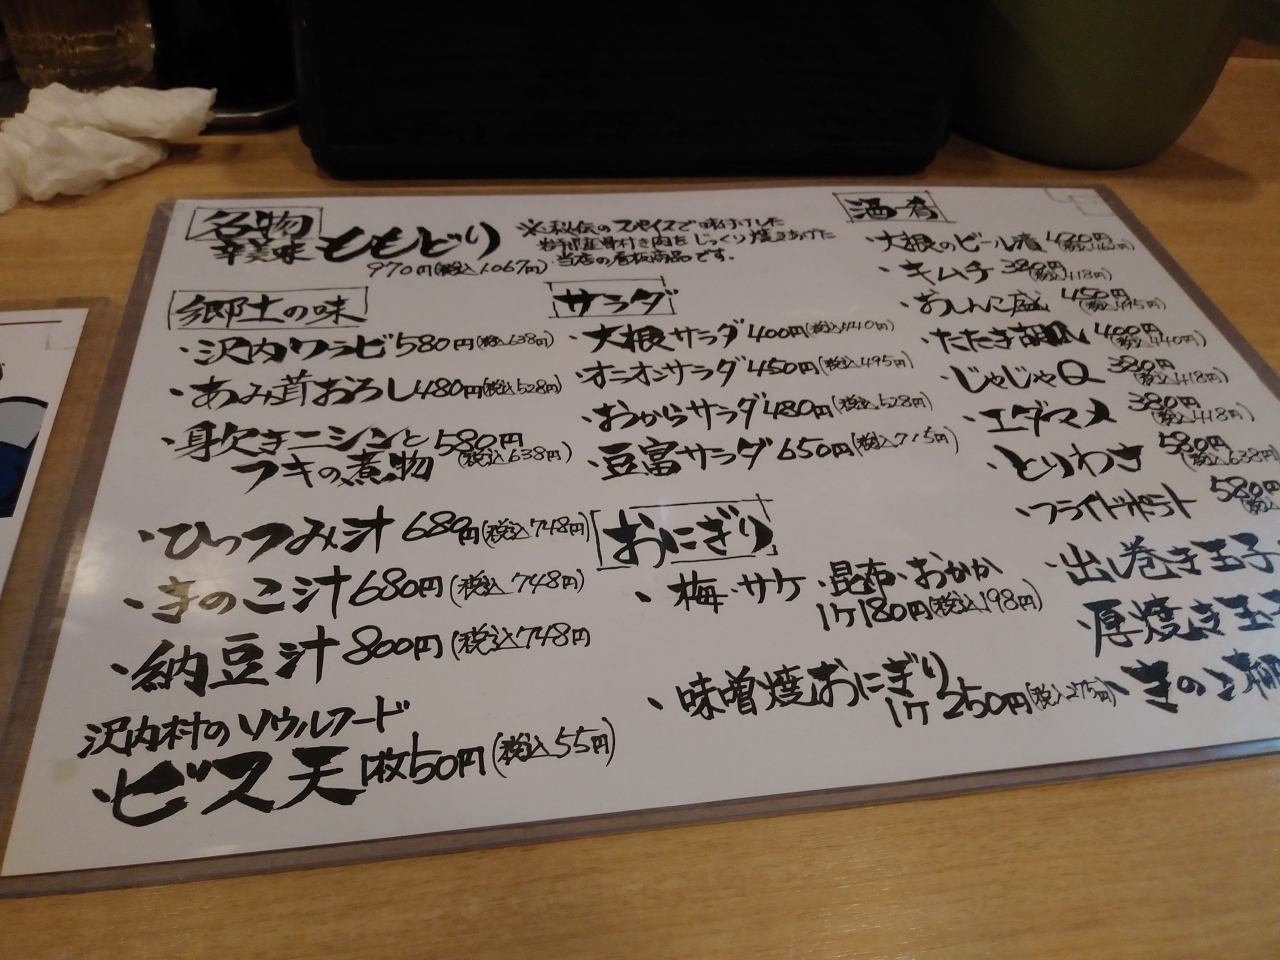 名物
辛美味ももどり
970円(税込1.067円)
※秘伝のスパイスで味付けした
骨付き肉をじっくり焼きあげた
当店の看板商品です。
郷土の味
・沢内ワラビ580円(税込638円)
・あみ茸おろし480円(税込528円)
・身欠きニシンと580円
フキの煮物(税込638円)
・ひっつみ汁680円(税込748円)
・きのこ汁680円(税込748円)
・納豆汁800円(税込748円
沢内村のソウルフード
・ビス天1枚50円(税込55円)
サラダ
・大根サラダ400円(税込440円)
・オニオンサラダ450円(税込495円)
・おからサラダ480円(税込528円)
・豆富サラダ650円(税込715円)
おにぎり
・梅・サケ・昆布・おかか
1ケ180円(税込198円)
・味噌焼おにぎり
1ケ250円(税込275円)
酒肴
・大根のビール漬
・キムチ380円(税込418円)
・おしんこ盛450円(税込495円)
・たたき胡瓜400円(税込440円)
・じゃじゃQ380円(税込418円)
・エダマメ380円(税込418円)
・とりわさ580円(税込638円)
・フライドポテト580円(税込
・出し巻き玉子
・厚焼き玉子
・きのこ柳